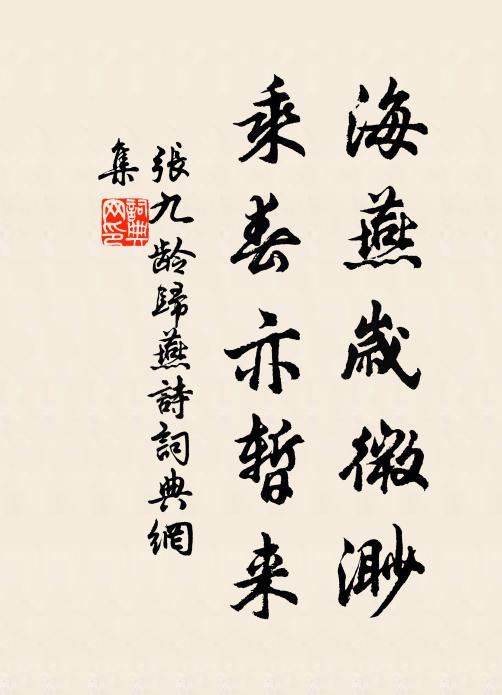 海燕歲微渺
乘春亦暫来
張九龄歸燕詩詞典網
集
詞典
网印